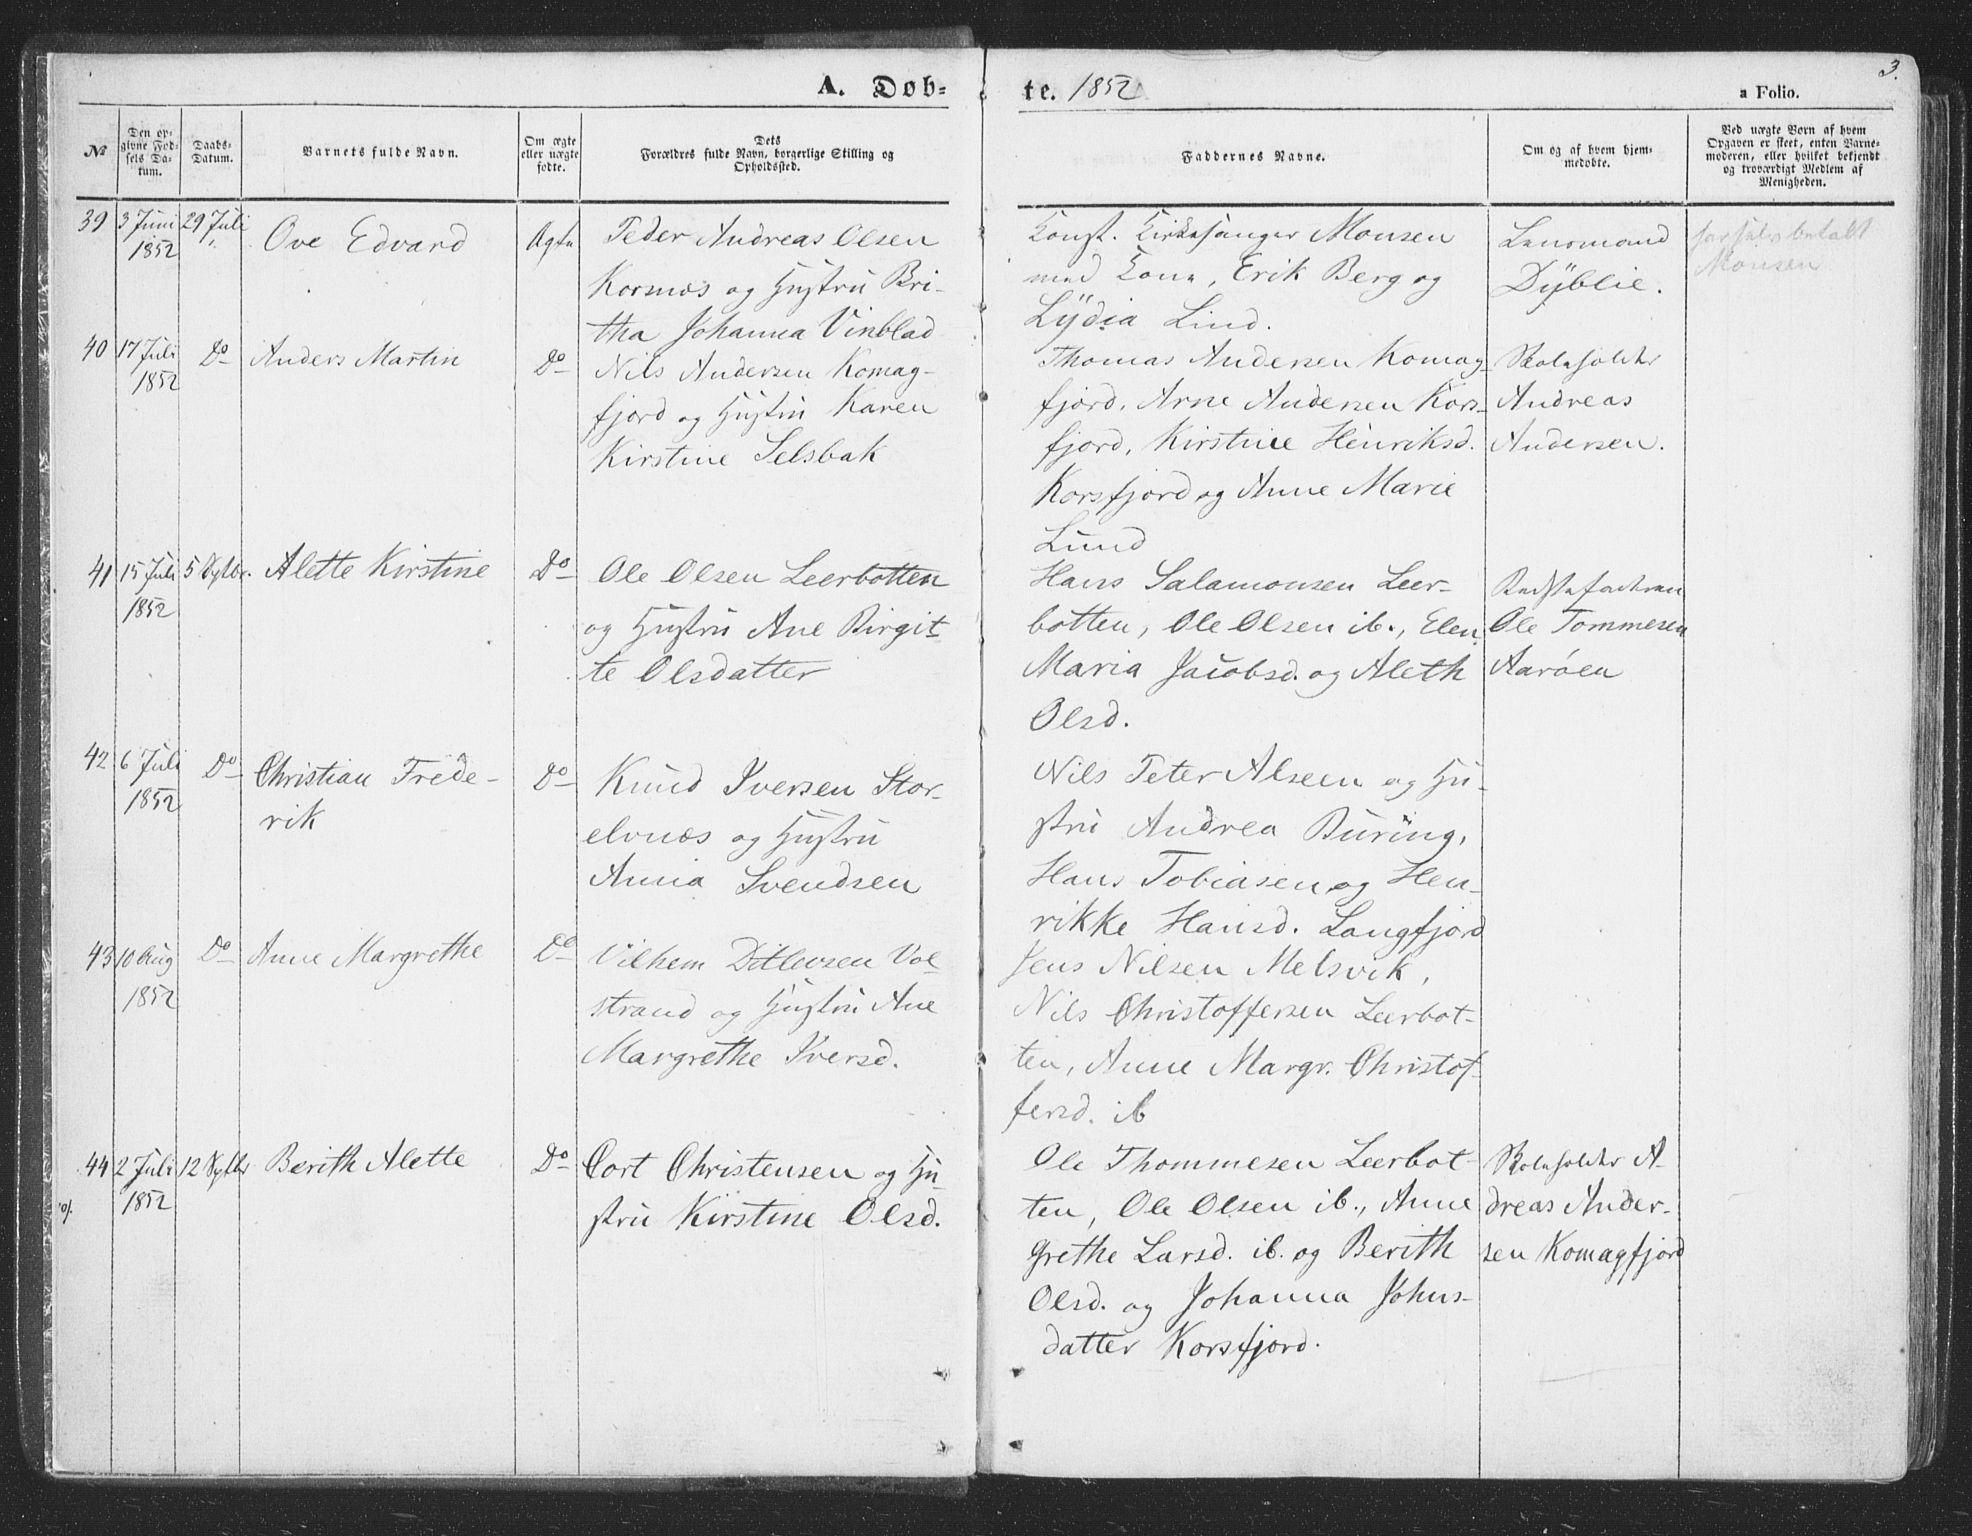 3.
A. Døb-
te. 1852
a Folio.
No
Den op-
givne Fød-
sels Da-
tum.
Daabs-
Datum.
Barnets fulde Navn.
Om ægte
eller uægte
fødte.
Dets
Forældres fulde Navn, borgerlige Stilling og
Opholdssted.
Faddernes Navne.
Om og af hvem hjem-
medøbte.
Ved uægte Børn af hvem
Opgaven er skeet, enten Barne-
moderen, eller hvilket bekjendt
og troværdigt Medlem af
Menigheden.
39
3 Juni
1852
29 Juli
Ove Edvard
Ægte
Peder Andreas Olsen
Korsnæs og Hustru Bri-
tha Johanna Vinblad
Konst. Kirkesanger Monsen
med Kone, Erik Berg og
Lydia Lind.
Lensmand
Dyblie.
betalt
Monsen
40
17 Juli
1852
Do
Anders Martin
Do
Nils Andersen Komag-
fjord og Hustru Karen
Kirstine Selsbak
Thomas Andersen Komag-
fjord, Arne Andersen Kors-
fjord, Kirstine Henriksd.
Korsfjord og Anne Marie
Lund
Skoleholder
Andreas
Andersen.
41
15 Juli
1852
5 Sptbr.
Alette Kirstine
Do
Ole Olsen Leerbotten
og Hustru Ane Birgit-
te Olsdatter
Hans Salamonsen Leer-
botten, Ole Olsen ib., Elen
Maria Jacobsd. og Aleth
Olsd.
Ole Tommesen
Aarøen
42
6 Juli
1852
Do
Christian Frede-
rik
Do
Knud Iversen Stor-
elvnæs og Hustru
Anna Svendsen
Nils Peter Alseen og Hu-
stru Andrea Buring,
Hans Tobiasen og Hen-
rikke Hansd. Langfjord
43
10 Aug
1852
Do
Anne Margrethe
Do
Vilhem Ditlevsen Vol-
strand og Hustru Ane
Margrethe Iversd.
Jens Nilsen Melsvik,
Nils Christoffersen Leerbot-
ten, Anne Margr. Christof-
fersd. ib
44
2 Juli
1852
12 Sptbr
Berith Alette
Do
Cort Christensen og Hu-
stru Kirstine Olsd.
Ole Thommesen Leerbot-
ten, Ole Olsen ib., Anne
Grethe Larsd. ib. og Berith
Olsd. og Johanna Johns-
datter Korsfjord.
Skoleholder A-
dreas Ander-
sen Komagfjord